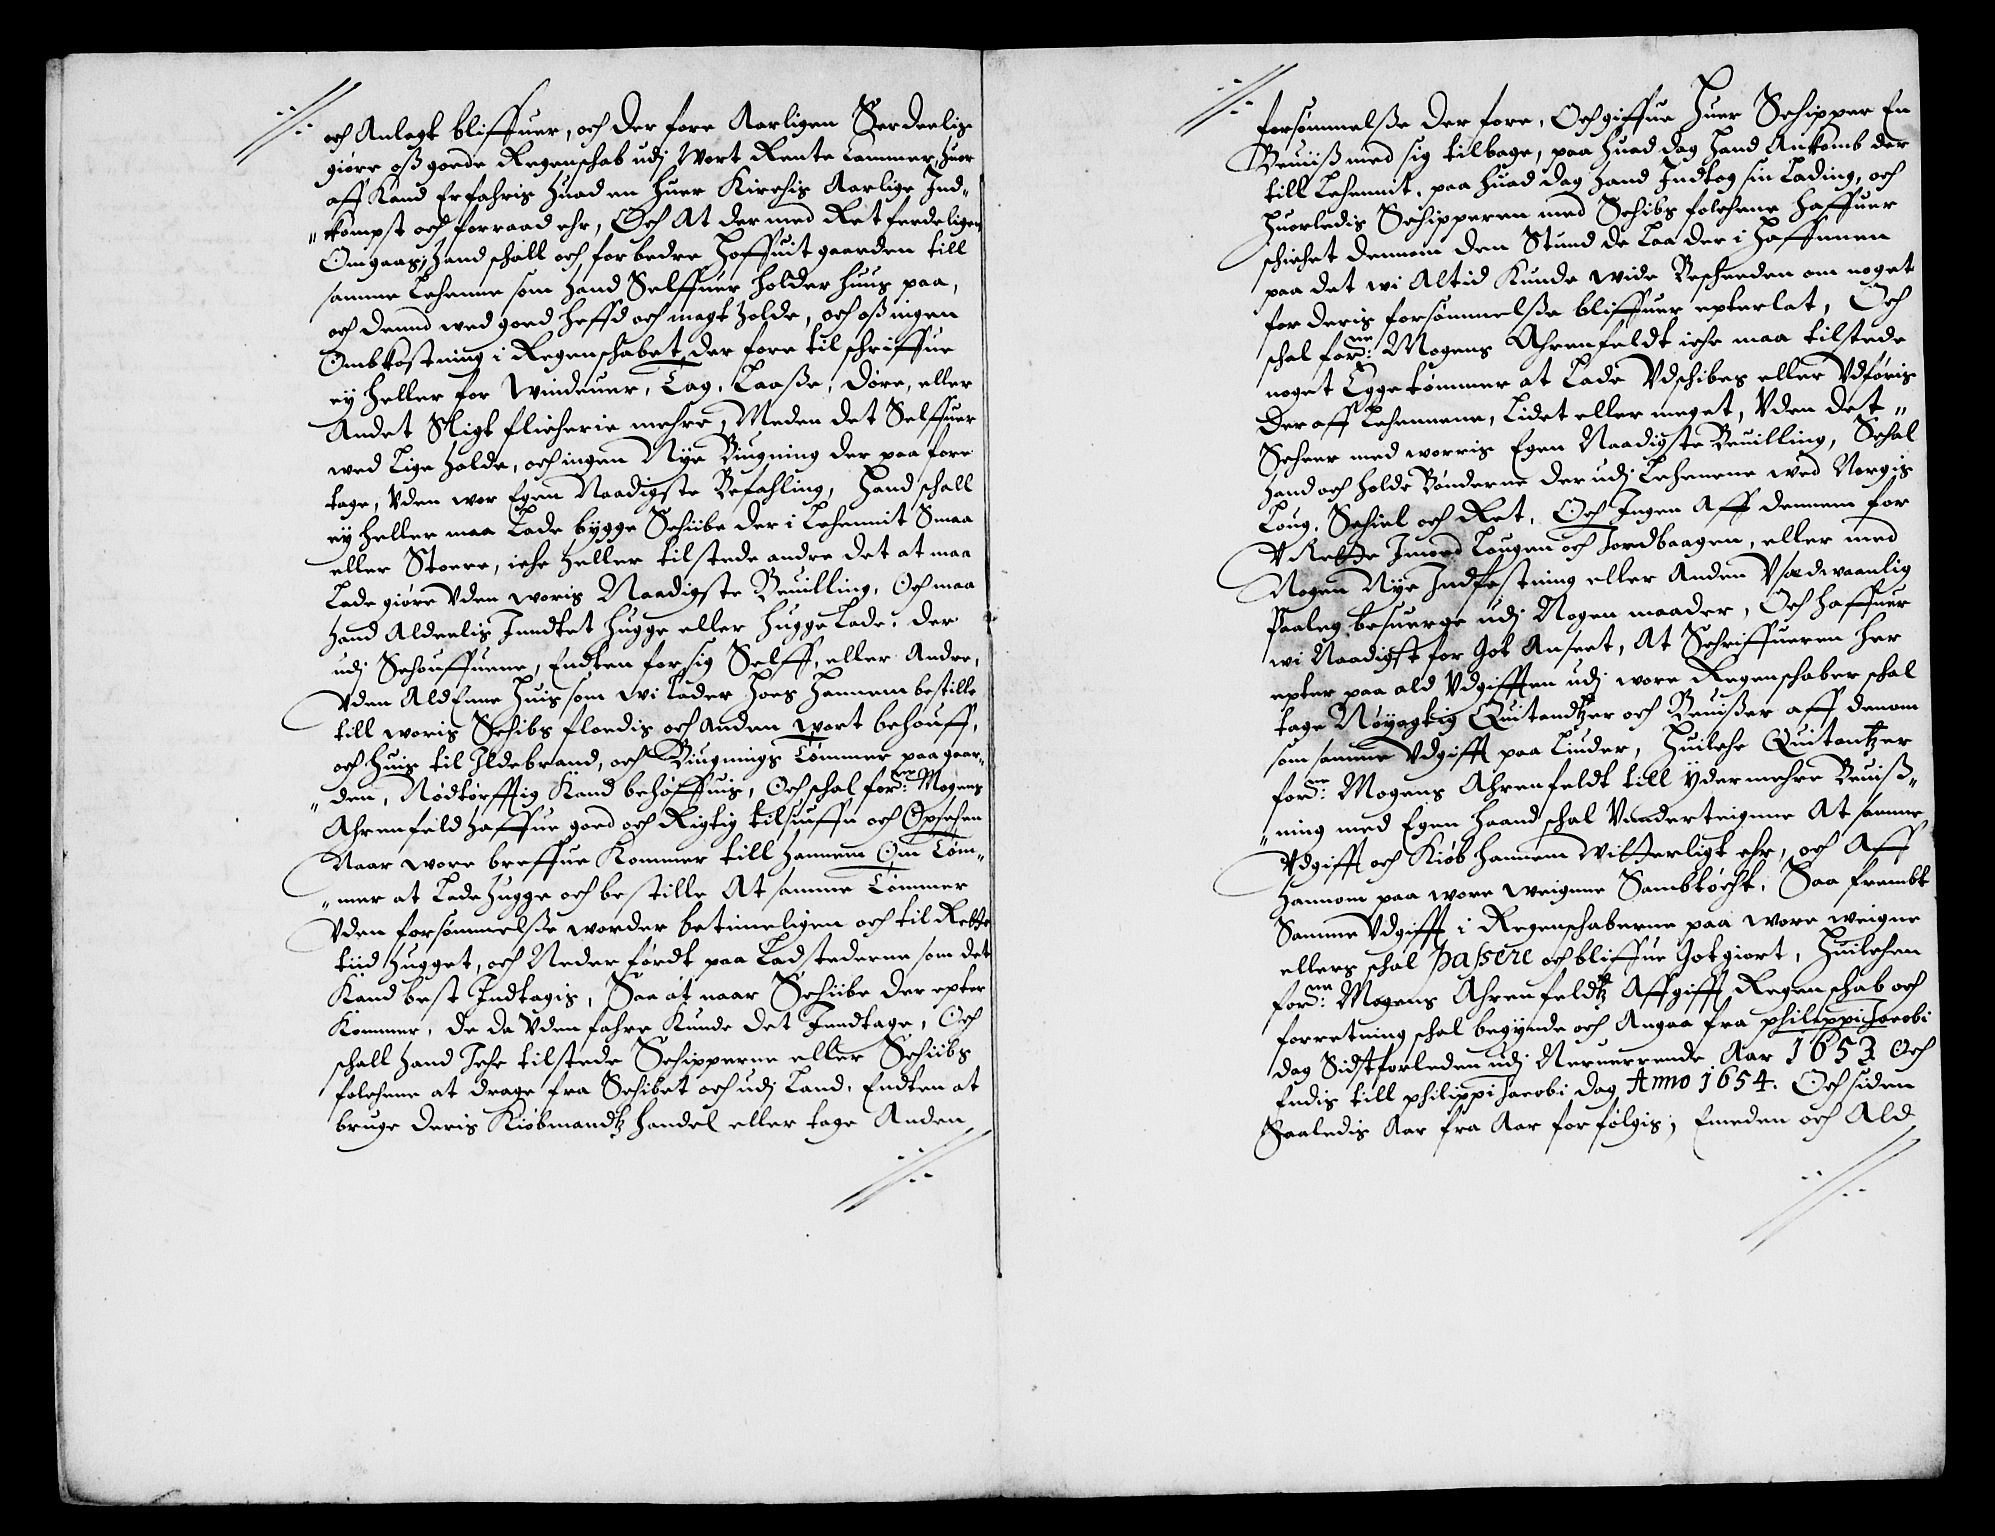 och Anlagt bliffuer, och der fore Aarligen Serdeelis
giøre oß goede Regenschab udj Wort Rente Cammer, huor
aff Kand Erfahris huad en huer Kirchis Aarlige Ind„
„kompst och forraad ehr, Och At der med Retferdeligen
Omgaas, Hand schall och forbedre Hoffuit gaarden till
samme Lehenne som hand Selffuer holder huus paa,
och dennd wed goed heffd och magt holde, och oß ingen
Ombkostning i Regenschabet der fore til schriffue
ey heller for Winduer, Tag, Laaße, Døre, eller
Andet Sligt flicherie mehre, Meden det Selffuer
wed Lige holde, och ingen Nye Biugning der paa fore
tage, Vden wor Egen Naadigste Befahling, Hand schall
ey heller maa Lade bygge Schiibe der i Lehennit Smaa
eller Stoere, iche heller tilstede andre det at maa
Lade giøre Vden woris Naadigste Beuilling, Och maa
hand Aldeelis Inndtet hugge eller hugge Lade, der
udj Schouffuene, Endten for sig Selff, eller Andre,
Vden Aldene huis som wi Lader hoes Hannem bestille
till woris Schibs floedis och Anden wort behouff,
och huis til Ildebrand, och Biugnings Tømmer paa gaar„
„den, Nødtørfftig Kand behøffuis, Och schal fordne: Mogens
Ahrenfeld haffue goed och Rigtig tilsiuffn och Opsehen
Naar wore breffue Kommer till hannem Om Tøm„
„mer at Lade hugge och bestille At samme Tømmer
Vden forsømmelße worder betimeligen och til Rette
tiid hugget, och Neder førdt paa Ladstederne som det
Kand best Indtagis, Saa at naar Schiibe der epter
Kommer, de da Vden fahre Kunde det Inndtage, Och
schall hand Iche tilstede Schipperne eller Schiibs
folchene at drage fra Schibet och udj Land, Endten at
bruge deris Kiøbmandtz handel eller tage Anden
forsømmelße der fore, Och giffue Huer Schipper En
Beuiiß med sig tilbage, paa huad dag hand Ankomb der
till Lehennit, paa huad dag hand Indtog sin Lading, och
huorledis Schipperen med Schibs folchene haffuer
schichet dennom den Stund de Laa der i Haffnnen
paa det wi Altid Kunde wide Bescheeden om noget
for deris forsømmelße bliffuer epterlat, Och
schal fordne: Mogens Ahrenfeldt iche maa tilstede
noget Eggetømmer at Lade Vdschibes eller Vdføris
der aff Lehennene, Lidet eller meget, Vden det„
Scheer med worris Egen Naadigste Beuilling, Schal
hand och holde Bønderne der udj Lehenene wed Norgis
Loug, Schiel och Ret, Och Ingen Aff dennem for
VRette Imod Lougen och Jordbaagen, eller med
Nogen Nye Indfestning eller Anden Vsædwaanlig
Paaleg besuerge udj Nogen maader, Och haffuer
wi Naadigst for Got Anseet, At Schriffueren her
epter paa ald Vdgifften udj wore Regenschaber schal
tage Nøyagtig Quitandtzer och Beuißer aff denom
som samme Vdgifft paa Liuder, Huilche Quitantzer
fordne: Mogens Ahrenfeldt till Ydermehre Beuiß„
„ning med Egen Haand schal Vnderteigne At samme
Vdgifft och Kiøb hannem witterligt ehr, och Aff
hannom paa wore weigne Sambtøcht, Saa frembt
Samme Vdgifft i Regenschaberne paa wore weigne
ellers schal passere och bliffue Gotgiort, Huilchen
fordne: Mogens Ahrenfeldtz Affgifft Regenschab och
forretning schal begynde och Angaa fra philippi Jacobi
dag Sidstforleden udj Neruerrende Aar 1653 Och
Endis till philippi Jacobi dag Anno 1654. Och siden
Saaledis Aar fra Aar forfølgis, Emeden och Ald